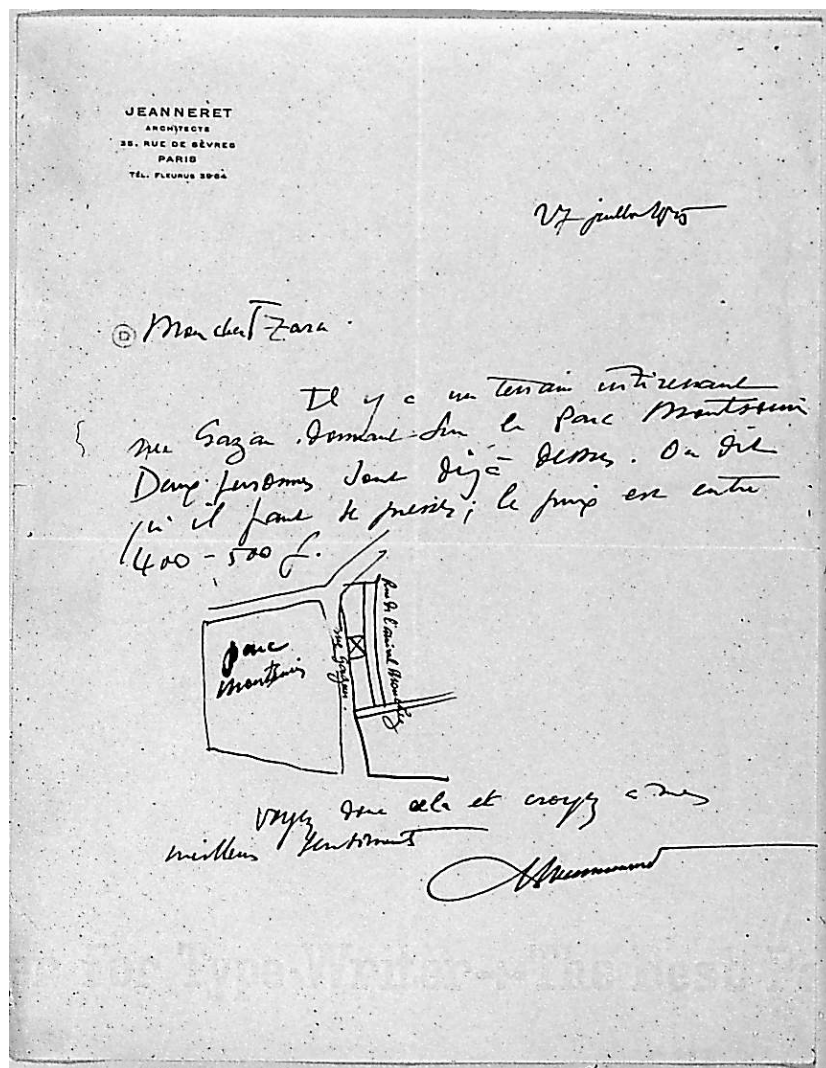 JEANNERET
ARCHITECTE
35. RUE DE SÈVRES
PARIS
TÉL. FLEURUS 39-84
27 juillet 1925
D
Mon cher Tzara.
Il y a un terrain intéressant
rue Gazan. donnant sur le Parc Montsouris
Deux personnes sont déjà dessus. On dit
qu'il faut se presser; le prix est entre
400-500 f.
parc
montsouris
rue Gazan.
Rue de l'amiral
voyez donc cela et croyez a mes
meilleurs sentiments
for Type-Writer The Best